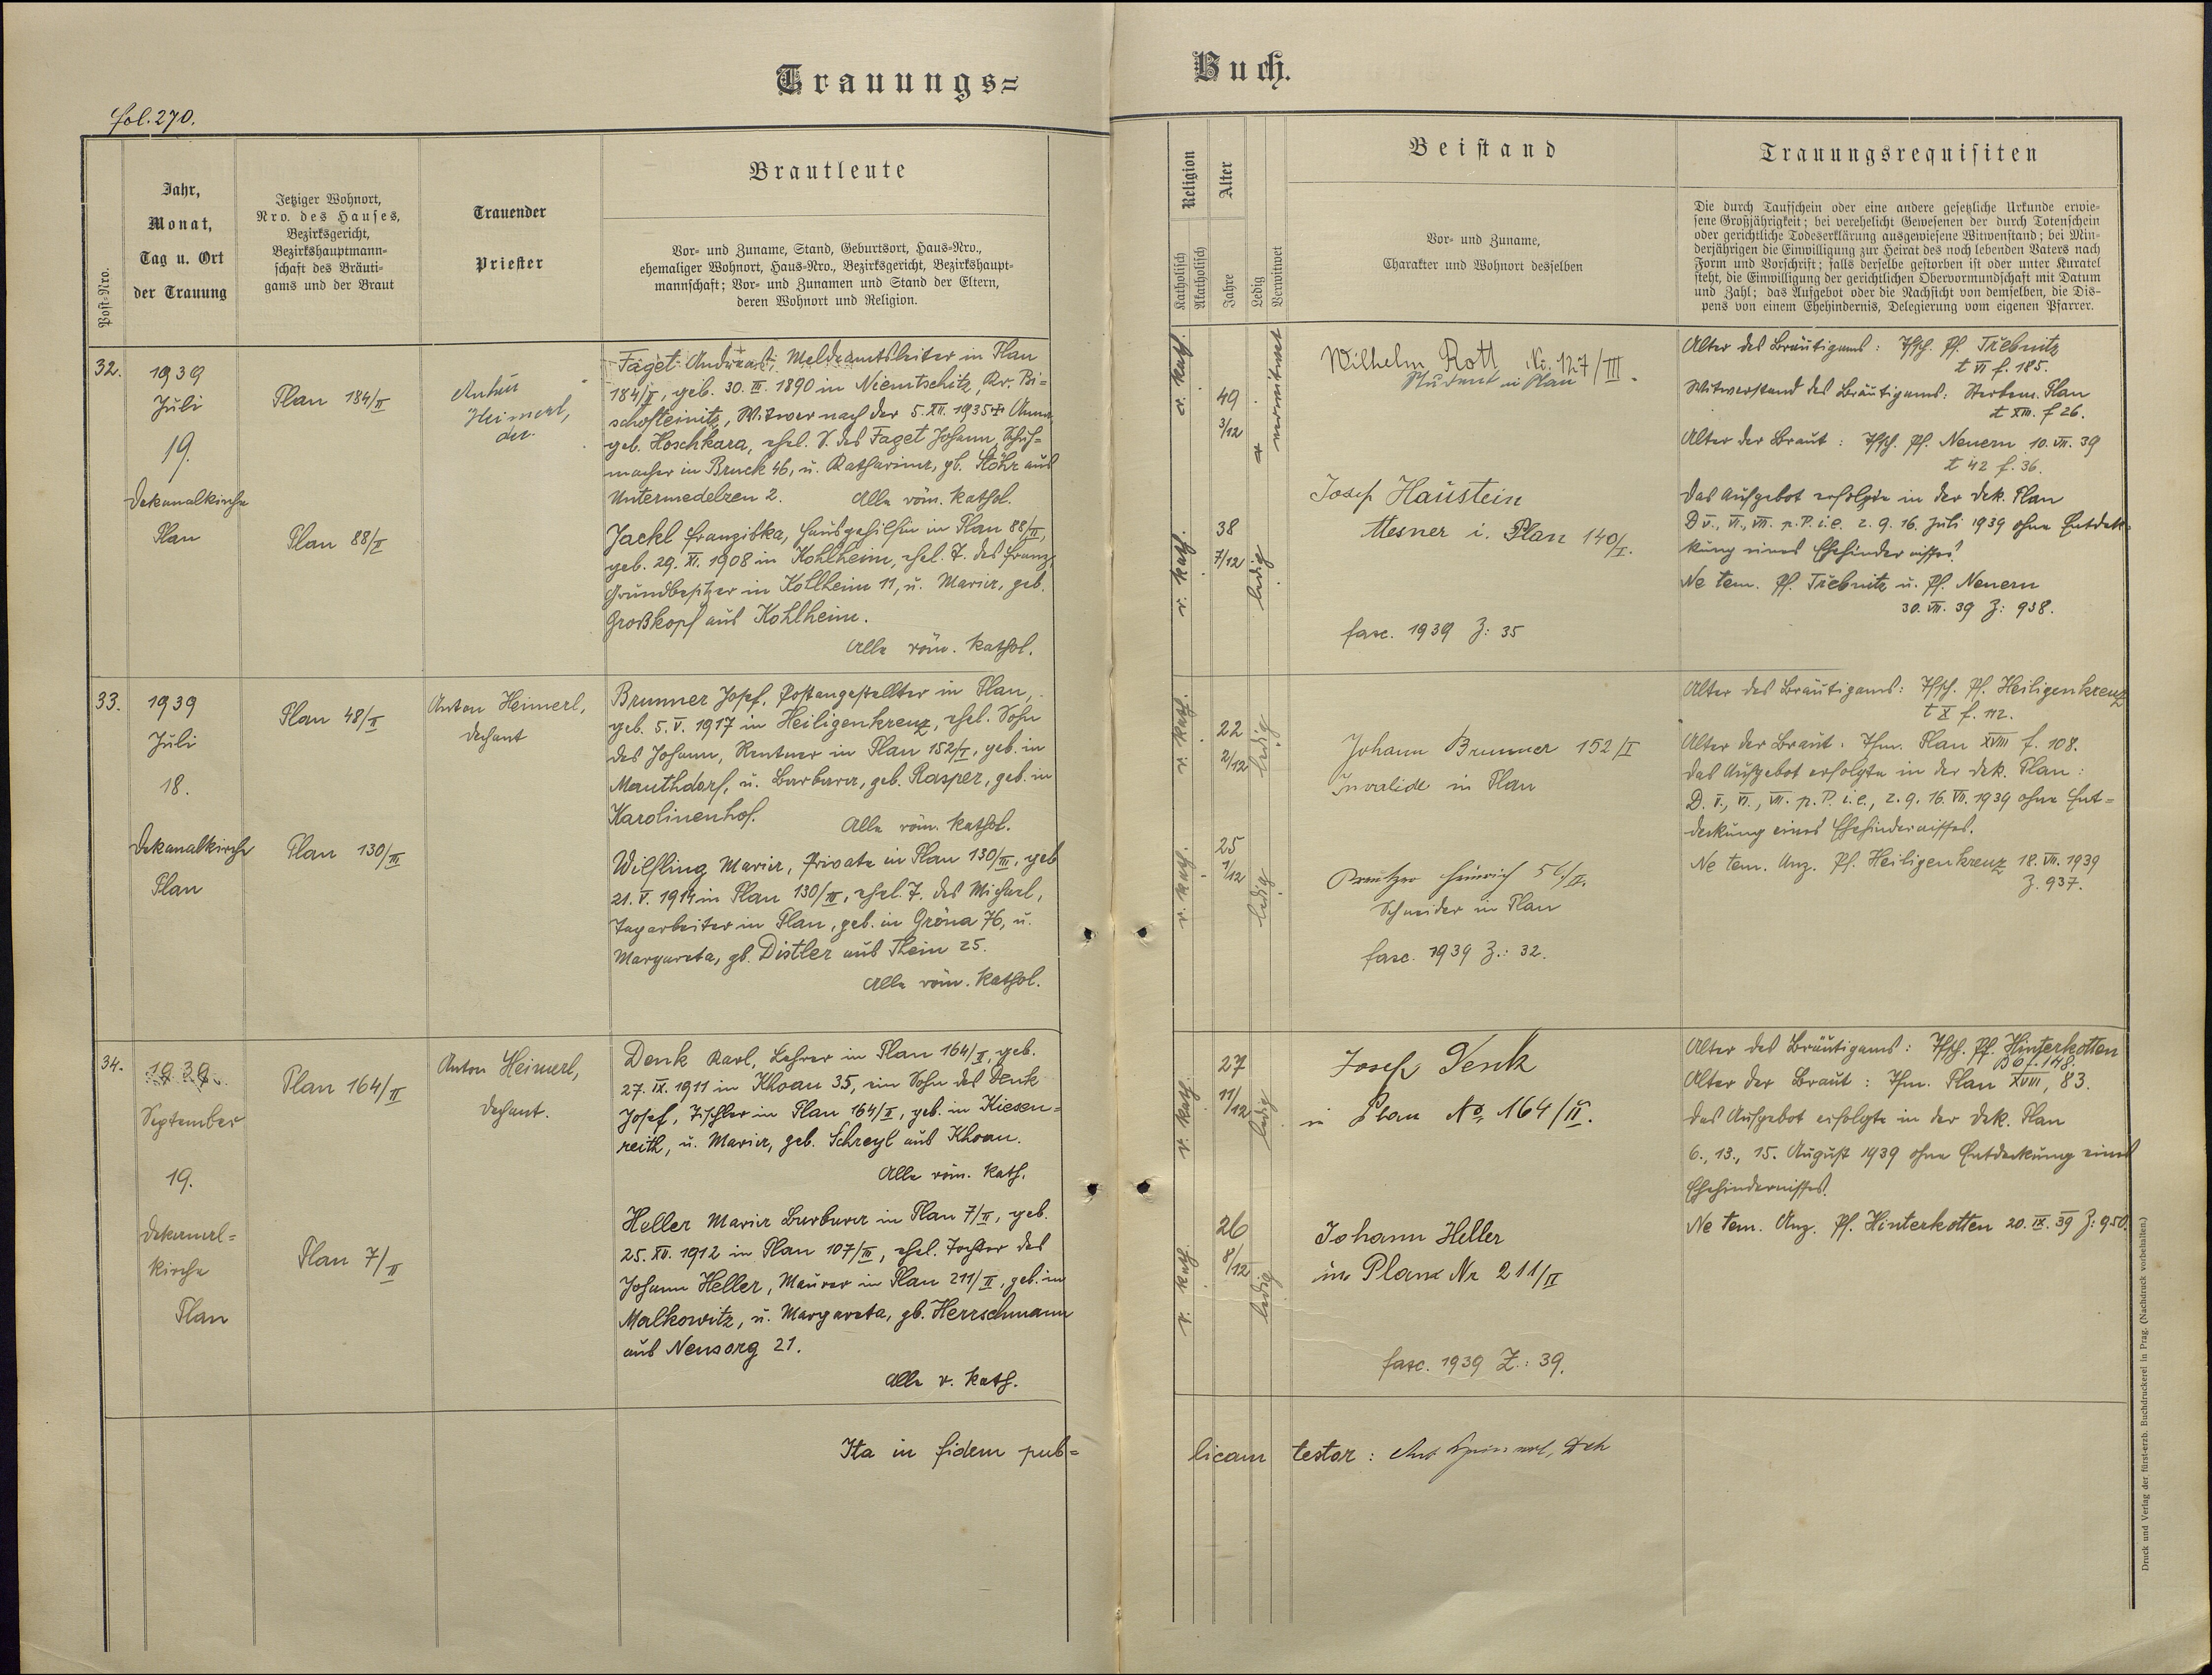 Trauungs=
Buch.
fol. 270.
Post-Nro.
Jahr,
Monat,
Tag u. Ort
der Trauung
Jetziger Wohnort,
Nro. des Hauses,
Bezirksgericht,
Bezirkshauptmann-
schaft des Bräuti-
gams und der Braut
Trauender
Priester
Brautleute
Vor- und Zuname, Stand, Geburtsort, Haus-Nro.,
ehemaliger Wohnort, Haus-Nro., Bezirksgericht, Bezirkshaupt-
mannschaft; Vor- und Zunamen und Stand der Eltern,
deren Wohnort und Religion.
Religion
Katholisch
Akatholisch
Alter
Jahre
Ledig
Verwitwet
Beistand
Vor- und Zuname,
Charakter und Wohnort desselben
Trauungsrequisiten
Die durch Taufschein oder eine andere gesetzliche Urkunde erwie-
sene Großjährigkeit; bei verehelicht Gewesenen der durch Totenschein
oder gerichtliche Todeserklärung ausgewiesene Witwenstand; bei Min-
derjährigen die Einwilligung zur Heirat des noch lebenden Vaters nach
Form und Vorschrift; falls derselbe gestorben ist oder unter Kuratel
steht, die Einwilligung der gerichtlichen Obervormundschaft mit Datum
und Zahl; das Aufgebot oder die Nachsicht von demselben, die Dis-
pens von einem Ehehindernis, Delegierung vom eigenen Pfarrer.
32.
1939
Juli
19.
Dekanalkirche
Plan
Plan 184/II
Plan 88/I
Anton
Heimerl,
der.
Faget Andreas, Meldeamtsleiter in Plan
184/II, geb. 30. III. 1890 in Niemtschitz, Kr. Bi=
schofteinitz, Witwer nach der 5. XII. 1935 + Anna
geb. Hoschkara, ehel. S. des Faget Johann, Schuh=
macher in Bruck 46, u. Katharina, gb. Stöhr aus
Untermedelzen 2. Alle röm. kathol.
Jackl Franziska, Hausgehilfin in Plan 88/II,
geb. 29. XI. 1908 in Kohlheim, ehel. T. des Franz,
Grundbesitzer in Kollheim 11, u. Maria, geb.
Großkopf aus Kohlheim.
Alle röm. kathol.
r. kath.
49
3/12
verwitwet
r. kath.
38
7/12
ledig
Wilhelm Rott Nr. 127/III.
Student in Plan
Josef Haustein
Mesner i. Plan 140/I.
fasc. 1939 Z: 35
Alter des Bräutigams: Tfsch. Pf. Třebnitz
t VI f. 185.
Witwerstand des Bräutigams: Sterbem. Plan
t XIII. f 26.
Alter der Braut: Tfsch. Pf. Neuern 10. VII. 39
t 42 f. 36.
Das Aufgebot erfolgte in der Dek. Plan
D V., VI., VII. p. P. i. e. 2. 9. 16. Juli 1939 ohne Entdek=
kung eines Ehehindernisses.
Ne tem. Pf. Třebnitz u. Pf. Neuern
30. VII. 39 Z: 938.
33.
1939
Juli
18.
Dekanalkirche
Plan
Plan 48/II
Plan 130/III
Anton Heimerl,
Dechant
Brunner Josef, Postangestellter in Plan,
geb. 5. V. 1917 in Heiligenkreuz, ehel. Sohn
des Johann, Rentner in Plan 152/I, geb. in
Mauthdorf, u. Barbara, geb. Rasper, geb. in
Karolinenhof. Alle röm. kathol.
Wilfling Maria, Private in Plan 130/III, geb
21. V. 1914 in Plan 130/III, ehel. T. des Michael,
Tagarbeiter in Plan, geb. in Gröna 76, u.
Margareta, gb. Distler aus Thein 25.
Alle röm. kathol.
r. kath.
22
2/12
ledig
r. kath.
25
1/12
ledig
Johann Brunner 152/I
Invalide in Plan
Heinrich
Schneider in Plan
fasc. 1939 Z.: 32.
Alter des Bräutigams: Tfsch. Pf. Heiligenkreuz
t X f. 112.
Alter der Braut: Tfm. Plan XVIII f. 108.
Das Aufgebot erfolgte in der Dek. Plan:
D. V., VI., VII. p. P. i. e., 2. 9. 16. VII. 1939 ohne Ent=
deckung eines Ehehindernisses.
Ne tem. Anz. Pf. Heiligenkreuz 18. VII. 1939
Z. 937.
34.
1939.
September
19.
Dekanal=
kirche
Plan
Plan 164/II
Plan 7/II
Anton Heimerl,
Dechant.
Denk Karl, Lehrer in Plan 164/II, geb.
27. IX. 1911 in Khoau 35, ein Sohn des Denk
Josef, Tischler in Plan 164/II, geb. in Kiesen=
reith, u. Maria, geb. Schreyl aus Khoau.
Alle röm. kath.
Heller Maria Barbara in Plan 7/II, geb.
25. XII. 1912 in Plan 107/III, ehel. Tochter des
Johann Heller, Maurer in Plan 211/II, geb. in
Malkowitz, u. Margareta, gb. Herrschmann
aus Neusorg 21.
Alle r. kath.
r. kath.
27
11/12
ledig
r. kath.
26
8/12
ledig
Josef Denk
in Plan No 164/II.
Johann Heller
in Plan Nr 211/II
fasc. 1939 Z.: 39.
Alter des Bräutigams: Tfsch. Pf. Hinterkotten
B e f. 148.
Alter der Braut: Tfm. Plan XVIII, 83.
Das Aufgebot erfolgte in der Dek. Plan
6., 13., 15. August 1939 ohne Entdeckung eines
Ehehindernisses.
Ne tem. Anz. Pf. Hinterkotten 20. IX. 39 Z: 950.
Ita in fidem pub=
licam testor: Ant Heimerl, Dch
Druck und Verlag der fürst-erzb. Buchdruckerei in Prag. (Nachdruck vorbehalten.)